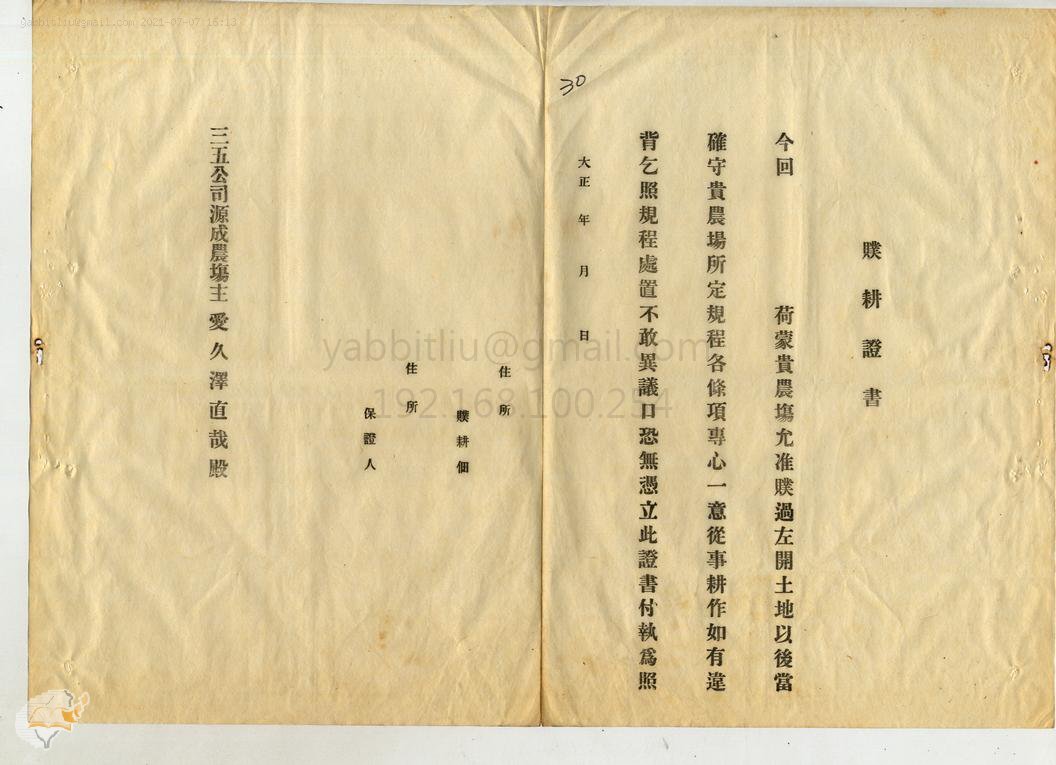 yabbitliu@gmail.com 2021-07-07 15:13
30
贌耕證書
今回 荷蒙貴農塲允准贌過左開土地以後當
確守貴農場所定規程各條項專心一意從事耕作如有違
背乞照規程處置不敢異議口恐無憑立此證書付執爲照
大正 年 月 日
住所
贌耕佃
住所
保證人
三五公司源成農塲主 愛久澤直哉殿
yabbitliu@gmail.com
192.168.100.254